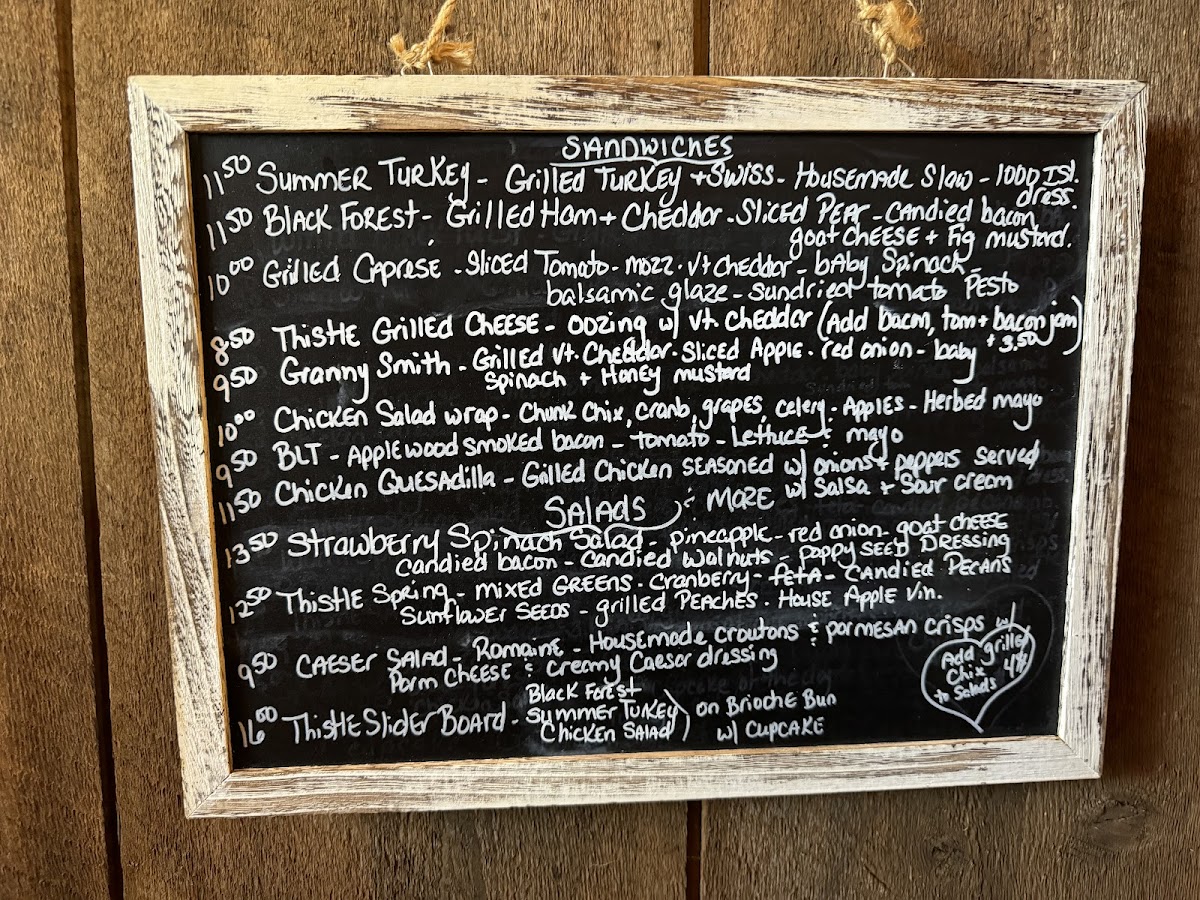 SANDWICHES
11.50 Summer Turkey - Grilled Turkey + Swiss - Housemade Slaw - 1000 Isl. dress.
11.50 Black Forest - Grilled Ham + Cheddar - Sliced Pear - Candied bacon
goat cheese + Fig mustard.
10.00 Grilled Caprese - Sliced Tomato - mozz - Vt cheddar - baby Spinach -
balsamic glaze - sundried tomato Pesto
8.50 Thistle Grilled Cheese - oozing w/ vt. cheddar (Add bacon, tom + bacon jam) + 3.50
9.50 Granny Smith - Grilled Vt. Cheddar - Sliced Apple - red onion - baby
Spinach + Honey mustard
10.00 Chicken Salad wrap - Chunk Chix, cranb, grapes, celery - Apples - Herbed mayo
9.50 BLT - Applewood smoked bacon - tomato - Lettuce & mayo
11.50 Chicken Quesadilla - Grilled Chicken seasoned w/ onions + peppers served
w/ Salsa + Sour cream
Salads & More
13.50 Strawberry Spinach Salad - pineapple - red onion - goat cheese
candied bacon - candied walnuts - poppy seed Dressing
12.50 Thistle Spring - mixed Greens - Cranberry - feta - Candied Pecans
Sunflower Seeds - grilled Peaches - House Apple Vin.
9.50 Caeser Salad - Romaine - Housemade croutons & parmesan crisps w/
Parm cheese & creamy Caesar dressing
Add grilled
Chix 4.00
to Salads
Black Forest
16.00 Thistle Slider Board - Summer Turkey) on Brioche Bun
Chicken Salad w/ Cupcake